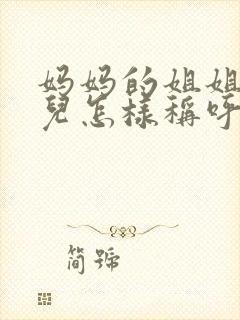 妈妈的姐姐
兒怎樣稱呼
简號